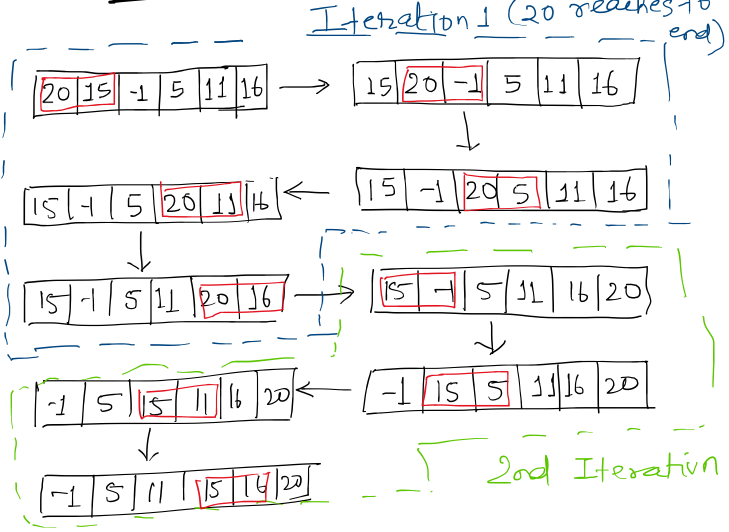 Iteration 1 (20 reaches to
end)
20 15 -1 5 11 16
15 20 -1 5 11 16
15 -1 20 5 11 16
15 -1 5 20 11 16
15 -1 5 11 20 16
15 -1 5 11 16 20
-1 15 5 11 16 20
-1 5 15 11 16 20
-1 5 11 15 16 20
2nd Iteration